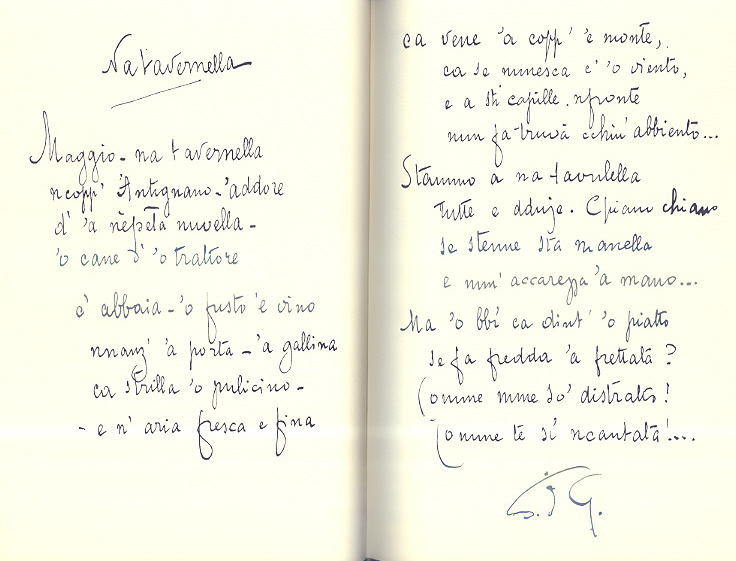 Na tavernella
Maggio - na tavernella
ncopp' Antignano - 'addore
d' 'a nèpeta nuvella -
'o cane d' 'o trattore
c' abbaia - 'o fusto 'e vino
nnanz' 'a porta - 'a gallina
ca strilla 'o pulicino -
- e n' aria fresca e fina
ca vene 'a copp' 'e monte,
ca se mmesca c' 'o viento,
e a sti capille nfronte
nun fa truvà cchiù abbiento...
Stammo a na tavulella
tutte e dduje. Chianu chiano
se stenne sta manella
e mm' accarezza 'a mano...
Ma 'o bbi' ca dint' 'o piatto
se fa fredda 'a frettata?
Comme mme so' distratto!
Comme te si' ncantata!...
S. d G.